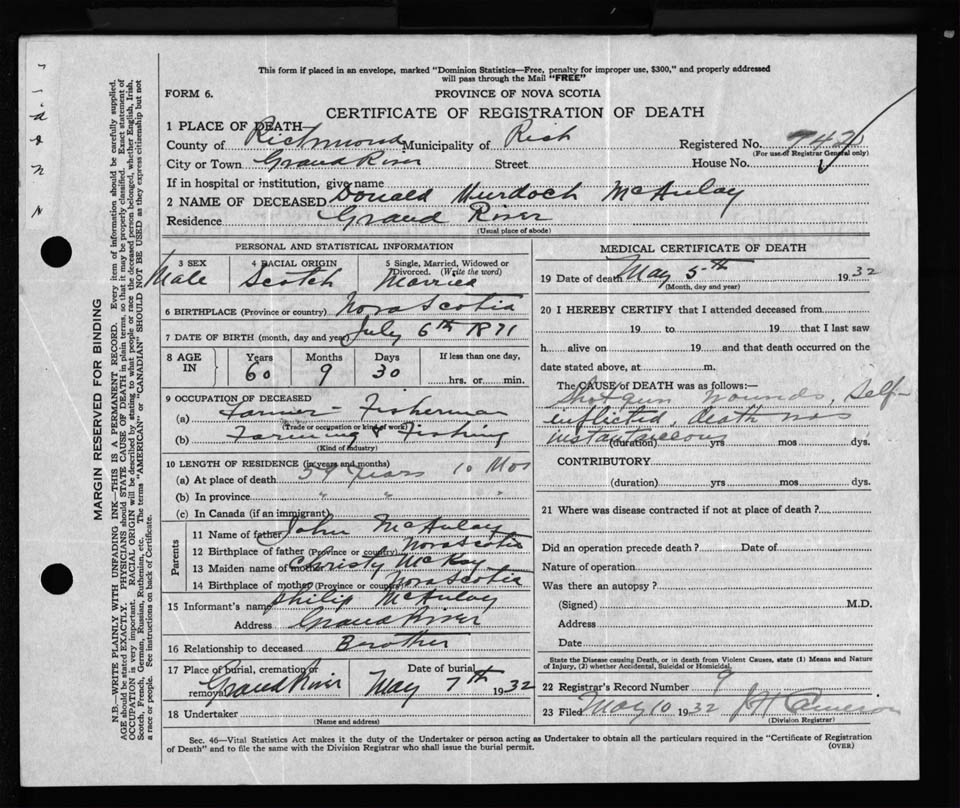 This form if placed in an envelope, marked "Dominion Statistics—Free, penalty for improper use, $300," and properly addressed
will pass through the Mail "FREE"
FORM 6.
PROVINCE OF NOVA SCOTIA
CERTIFICATE OF REGISTRATION OF DEATH
1 PLACE OF DEATH—
County of Richmond Municipality of Rich Registered No.
(For use of Registrar General only)
City or Town Grand River Street House No.
If in hospital or institution, give name
2 NAME OF DECEASED Donald Murdoch McAulay
Residence Grand River
(Usual place of abode)
PERSONAL AND STATISTICAL INFORMATION
3 SEX 4 RACIAL ORIGIN 5 Single, Married, Widowed or
Divorced. (Write the word)
Male Scotch Married
6 BIRTHPLACE (Province or country) Nova Scotia
7 DATE OF BIRTH (month, day and year) July 6th 1871
8 AGE IN Years Months Days If less than one day,
60 9 30 hrs. or min.
9 OCCUPATION OF DECEASED
(a) Farmer - Fisherman
(Trade or occupation or kind of work)
(b) Farming & Fishing
(Kind of industry)
10 LENGTH OF RESIDENCE (in years and months)
(a) At place of death 59 years 10 Mos
(b) In province " " "
(c) In Canada (if an immigrant)
Parents
11 Name of father John McAulay
12 Birthplace of father (Province or country) Nova Scotia
13 Maiden name of mother Christy McKay
14 Birthplace of mother (Province or country) Nova Scotia
15 Informant's name Philip McAulay
Address Grand River
16 Relationship to deceased Brother
17 Place of burial, cremation or removal Grand River Date of burial
May 7th 1932
18 Undertaker
(Name and address)
MEDICAL CERTIFICATE OF DEATH
19 Date of death May 5th 1932
(Month, day and year)
20 I HEREBY CERTIFY that I attended deceased from
19 to 19 that I last saw
h alive on 19 and that death occurred on the
date stated above, at m.
The CAUSE OF DEATH was as follows:—
Shotgun wounds, Self-
inflicted, death was
instantaneous
(duration) yrs mos dys.
CONTRIBUTORY
(duration) yrs mos dys.
21 Where was disease contracted if not at place of death?
Did an operation precede death? Date of
Nature of operation
Was there an autopsy?
(Signed) M.D.
Address
Date
State the Disease causing Death, or in death from Violent Causes, state (1) Means and Nature
of Injury, (2) whether Accidental, Suicidal or Homicidal.
22 Registrar's Record Number 9
23 Filed May 10 1932 J H Cameron
(Division Registrar)
Sec. 46—Vital Statistics Act makes it the duty of the Undertaker or person acting as Undertaker to obtain all the particulars required in the "Certificate of Registration
of Death" and to file the same with the Division Registrar who shall issue the burial permit.
(OVER)
MARGIN RESERVED FOR BINDING
N.B.—WRITE PLAINLY WITH UNFADING INK—THIS IS A PERMANENT RECORD. Every item of information should be carefully supplied.
AGE should be stated EXACTLY. PHYSICIANS should STATE CAUSE OF DEATH in plain terms, so that it may be properly classified. Exact statement of
OCCUPATION is very important. RACIAL ORIGIN will be described by stating to what people or race the deceased person belonged, whether English, Irish,
Scotch, French, German, Russian, Ruthenian, etc. The terms "AMERICAN" or "CANADIAN" SHOULD NOT BE USED as they express citizenship but not
a race or people. See instructions on back of Certificate.